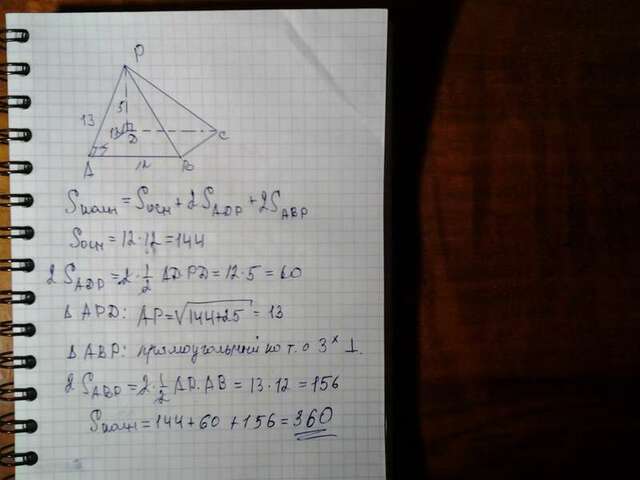 P
13
5
D
C
A
12
B
Sполн = Sосн + 2S ADP + 2S ABP
Sосн = 12·12 = 144
2 S ADP = 2·1/2 AD·PD = 12·5 = 60
Δ APD: AP = √144+25 = 13
Δ ABP: прямоугольный по т. о 3ˣ ⊥.
2 S ABP = 2·1/2 AP·AB = 13·12 = 156
Sполн = 144 + 60 + 156 = 360